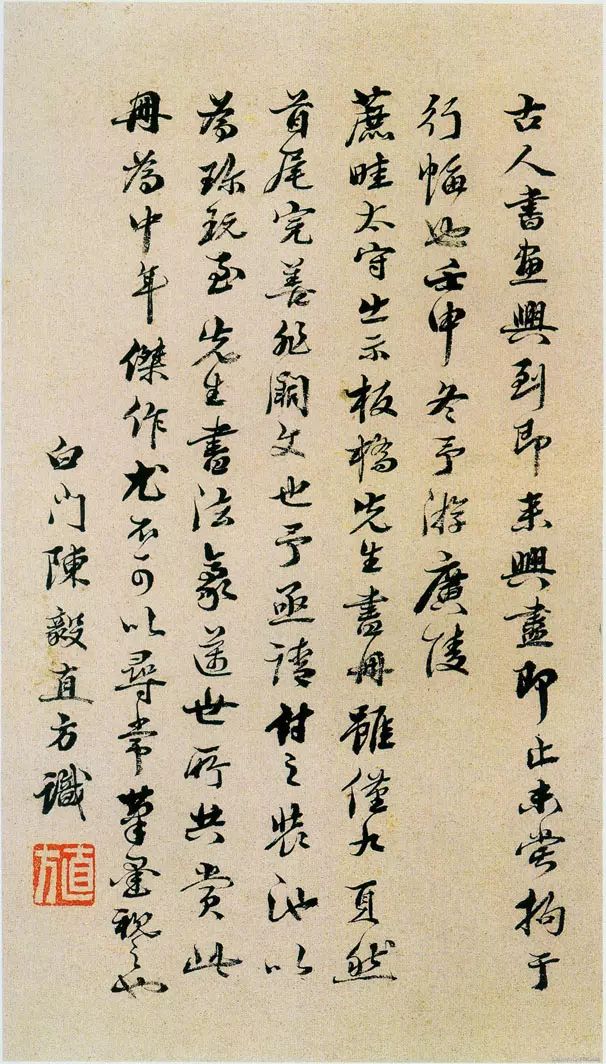 古人書畫興到即來興盡即止未嘗拘于
行幅也壬申冬予游廣陵
蔗畦太守出示板橋先生畫冊雖僅九頁然
首尾完善非闕文也予亟請付之裝池以
為珍玩至先生書法篆隸世所共賞此
冊為中年傑作尤不可以尋常筆墨視之也
白門陳毅直方識
直方